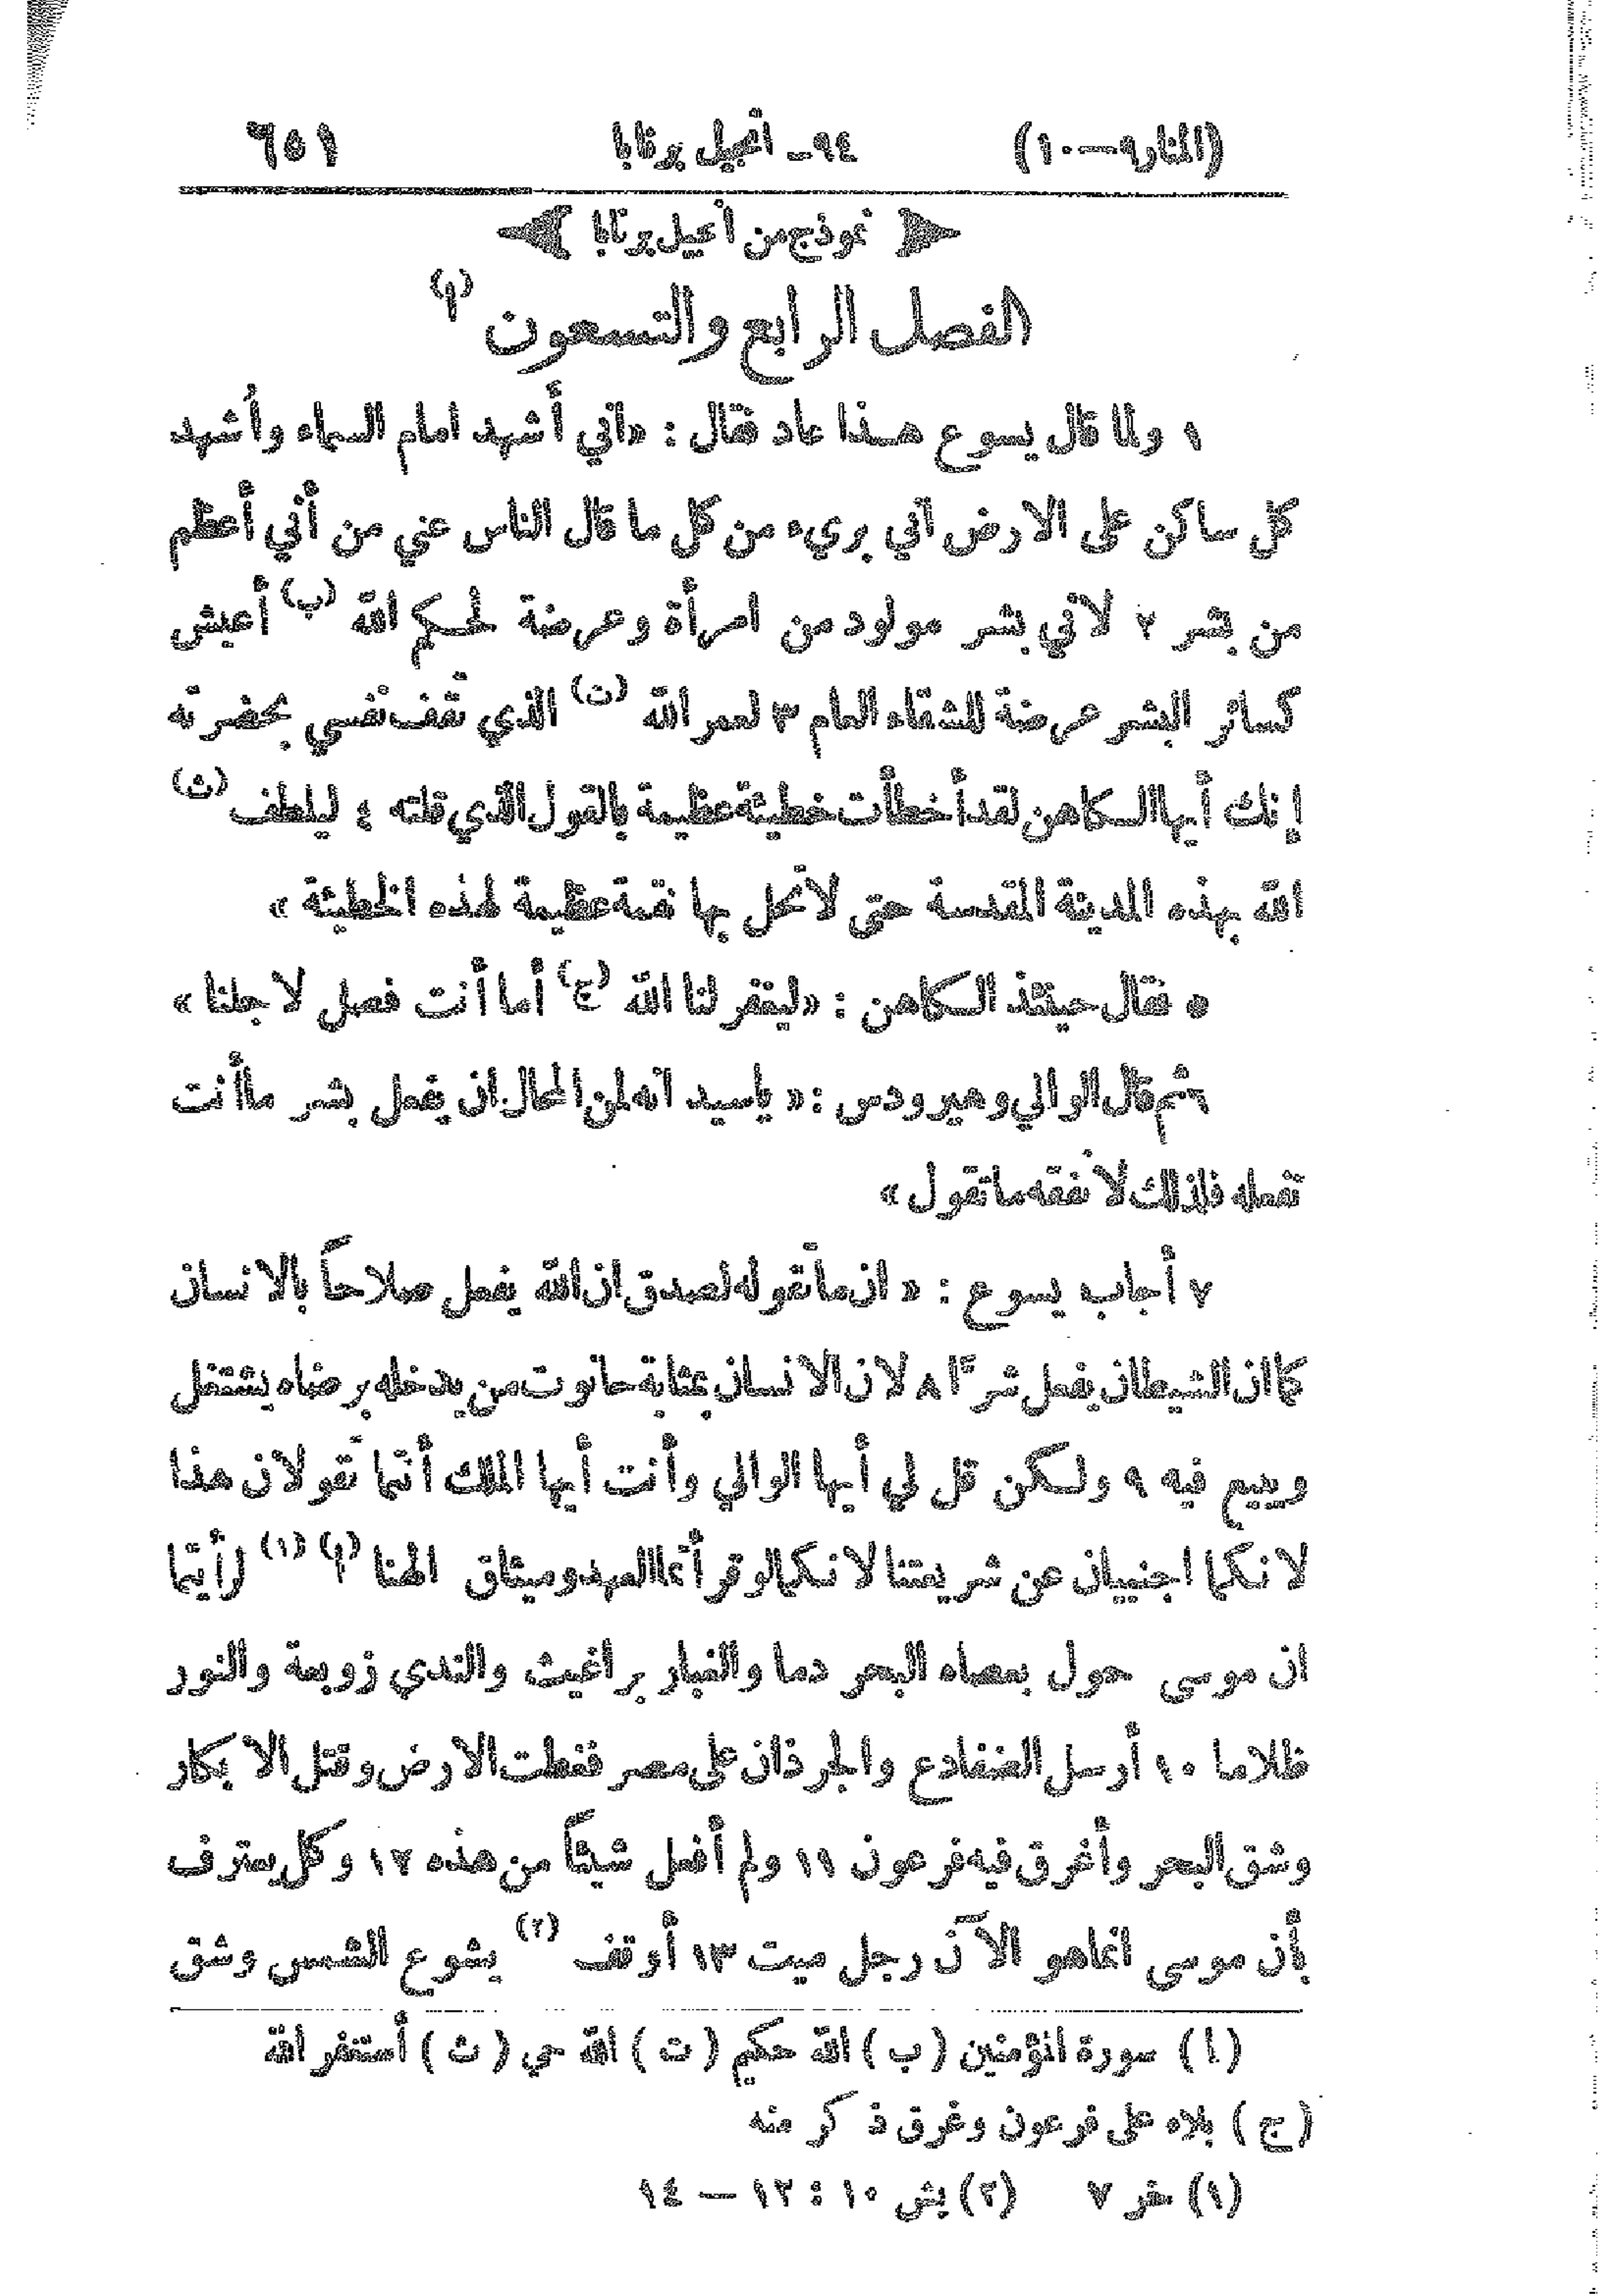 (المنار ٩ — ١٠) ٩٤ـ انجيل برنابا ٦٥١
نموذج من انجيل برنابا
الفصل الرابع والتسعون (ا)
١ ولما قال يسوع هذا عاد فقال : «اني أشهد امام السماء وأشهد
كل ساكن على الارض اني بريء من كل ما قال الناس عني من أني أعظم
من بشر ٢ لاني بشر مولود من امرأة وعرضة لحكم الله (ب) أعيش
كسائر البشر عرضة للشقاء العام ٣ لعمر الله (ت) الذي تقف نفسي بحضرته
إنك أيها الكاهن لقد أخطأت خطيئة عظيمة بالقول الذي قلته ٤ ليلطف (ث)
الله بهذه المدينة المقدسة حتى لا تحل بها نقمة عظيمة لهذه الخطيئة »
٥ فقال حينئذ الكاهن : «ليغفر لنا الله (ج) أما أنت فصل لاجلنا »
٦ ثم قال الوالي وهيرودس : « ياسيد انه لمن المحال ان يفعل بشر ما أنت
تفعله فلذلك لا نفقه ما تقول »
٧ أجاب يسوع : « ان ما تقوله لصدق ان الله يفعل صلاحاً بالانسان
كما ان الشيطان يفعل شرًّا ٨ لان الانسان بمثابة حانوت من يدخله برضاه يشتغل
ويبيع فيه ٩ ولكن قل لي أيها الوالي وأنت أيها الملك أنتما تقولان هذا
لانكما اجنبيان عن شريعتنا لانكما لو قرأتما العهد وميثاق الهنا (ا) (١) لرأيتما
ان موسى حول بعصاه البحر دما والغبار براغيث والندي زوبعة والنور
ظلاما ١٠ أرسل الضفادع والجرذان على مصر فغطت الارض وقتل الابكار
وشق البحر وأغرق فيه فرعون ١١ ولم أفعل شيئاً من هذه ١٢ وكل يعترف
بأن موسى انما هو الآن رجل ميت ١٣ أوقف (٢) يشوع الشمس وشق
(ا) سورة المؤمنين (ب) الله حكيم (ت) الله حي (ث) أستغفر الله
(ج) بلاه على فرعون وغرق ذكر منه
(١) خر ٧ (٢) يش ١٠ : ١٢ — ١٤